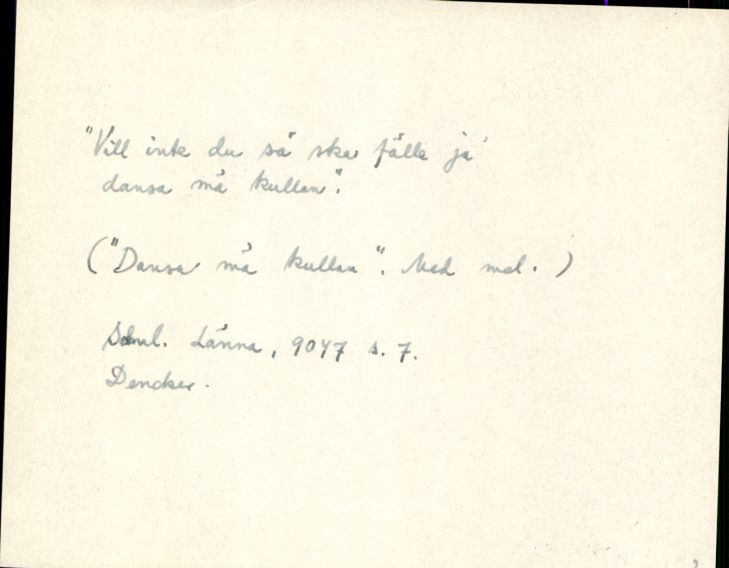 "Vill inte du så ska fälle ja
dansa må kullan".
("Dansa må kullan". Med mel.)
Sdml. Länna, 9047 s. 7.
Dencker.